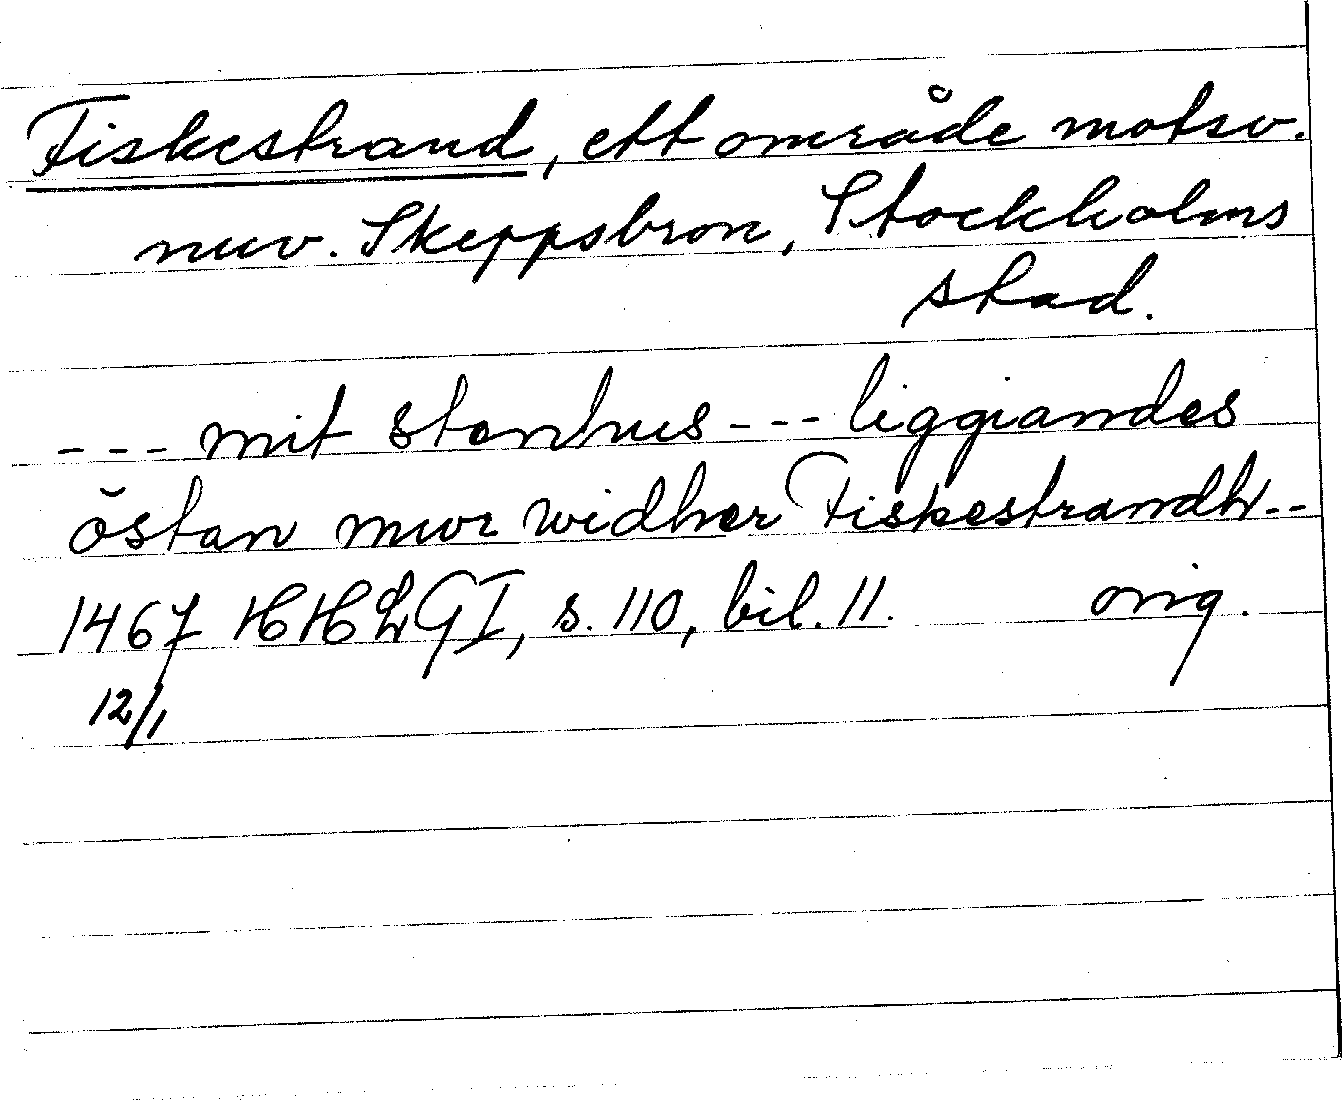 Fiskestrand, ett område motsv.
nuv. Skeppsbron, Stockholms
stad.
--- mit stenhus --- liggiandes
östan mwr widher Fiskestrandh --
1467 HHLGI, s. 110, bil. 11. orig.
12/1